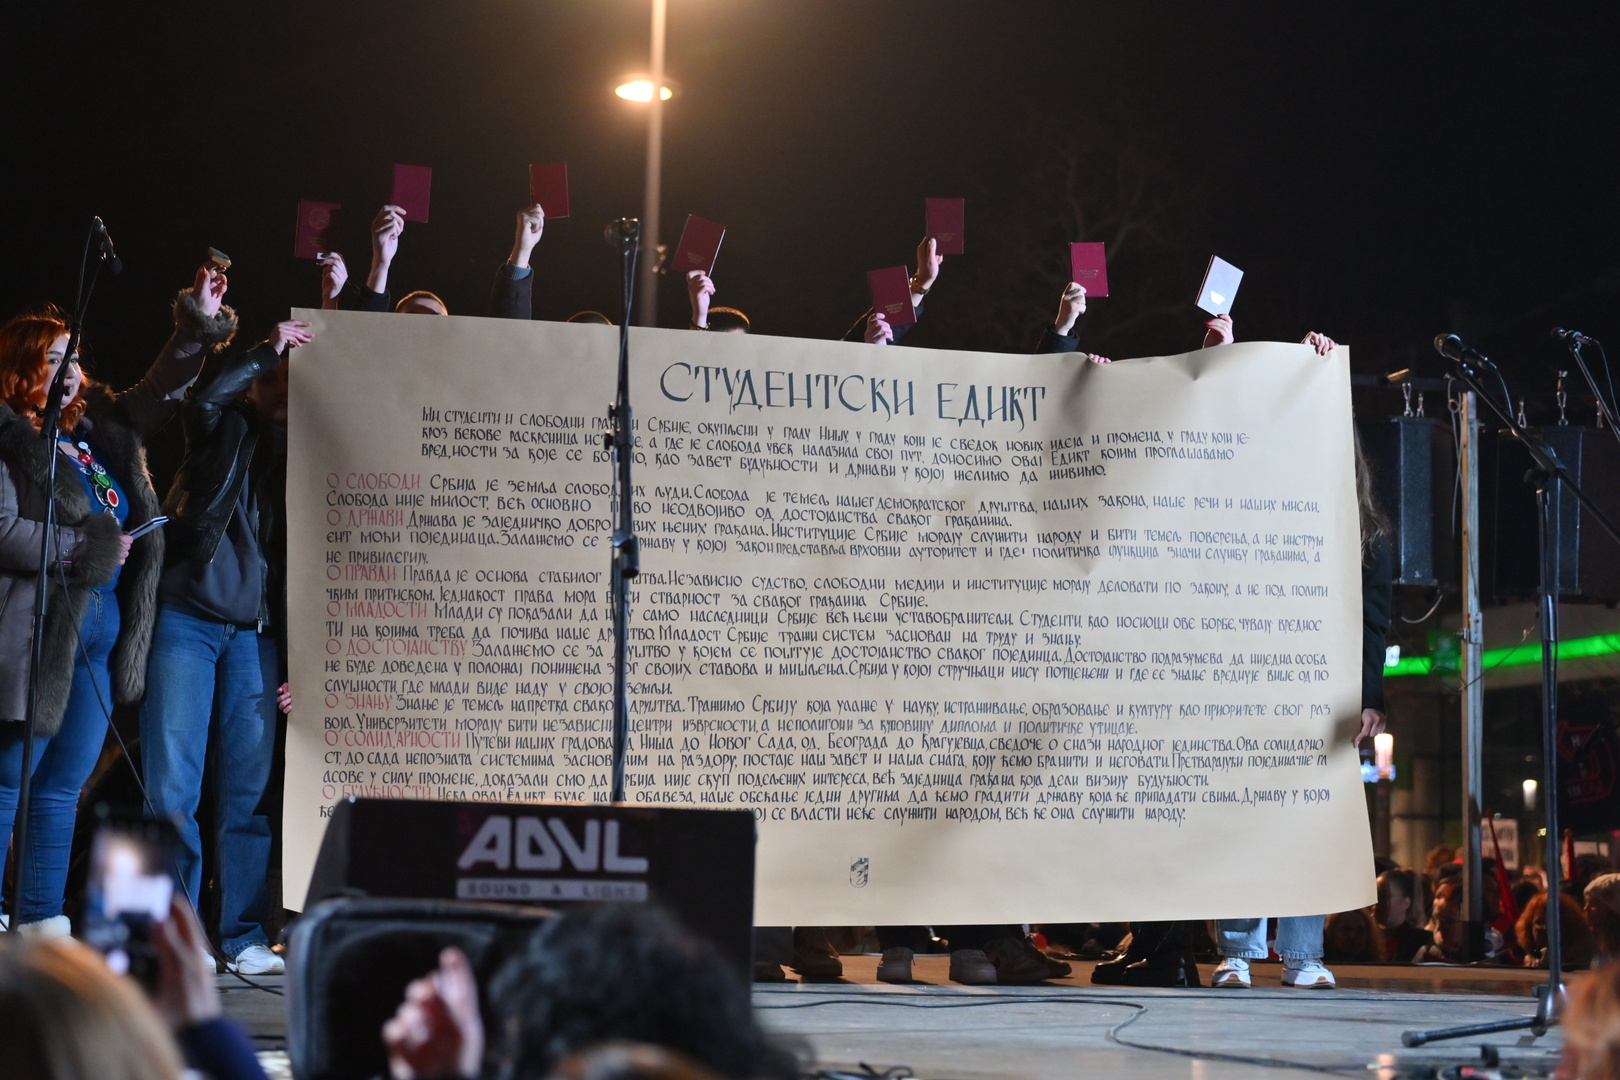 СТУДЕНТСКИ ЕДИКТ
МИ, СТУДЕНТИ И СЛОБОДНИ СРБИЈЕ, ОКУПЉЕНИ У ГРАДУ НИШУ, У ГРАДУ КОЈИ ЈЕ СВЕДОК НОВИХ ИДЕЈА И ПРОМЕНА, У ГРАДУ КОЈИ ЈЕ
КРОЗ ВЕКОВЕ РАСКРСНИЦА А ГДЕ ЈЕ СЛОБОДА УВЕК НАЛАЗИЛА СВОЈ ПУТ, ДОНОСИМО ОВАЈ ЕДИКТ КОЈИМ ПРОГЛАШАВАМО
ВРЕДНОСТИ ЗА КОЈЕ СЕ КАО ЗАВЕТ БУДУЋНОСТИ И ДРЖАВИ У КОЈОЈ ЖЕЛИМО ДА ЖИВИМО.
О СЛОБОДИ СРБИЈА ЈЕ ЗЕМЉА ЉУДИ. СЛОБОДА ЈЕ ТЕМЕЉ НАШЕГ ДЕМОКРАТСКОГ ДРУШТВА, НАШИХ ЗАКОНА, НАШЕ РЕЧИ И НАШИХ МИСЛИ.
СЛОБОДА НИЈЕ МИЛОСТ, ВЕЋ ОСНОВНО НЕОДВОЈИВО ОД ДОСТОЈАНСТВА СВАКОГ ГРАЂАНИНА.
О ДРЖАВИ ДРЖАВА ЈЕ ЗАЈЕДНИЧКО ДОБРО ЊЕНИХ ГРАЂАНА. ИНСТИТУЦИЈЕ СРБИЈЕ МОРАЈУ СЛУЖИТИ НАРОДУ И БИТИ ТЕМЕЉ ПОВЕРЕЊА, А НЕ ИНСТРУМ
ЕНТ МОЋИ ПОЈЕДИНАЦА. ЗАЛАЖЕМО СЕ ДРЖАВУ У КОЈОЈ ЗАКОН ПРЕДСТАВЉА ВРХОВНИ АУТОРИТЕТ И ГДЕ ПОЛИТИЧКА ФУНКЦИЈА ЗНАЧИ СЛУЖБУ ГРАЂАНИМА, А
НЕ ПРИВИЛЕГИЈУ.
О ПРАВДИ ПРАВДА ЈЕ ОСНОВА СТАБИЛНОГ НЕЗАВИСНО СУДСТВО, СЛОБОДНИ МЕДИЈИ И ИНСТИТУЦИЈЕ МОРАЈУ ДЕЛОВАТИ ПО ЗАКОНУ, А НЕ ПОД ПОЛИТИ
ЧКИМ ПРИТИСКОМ. ЈЕДНАКОСТ ПРАВА МОРА СТВАРНОСТ ЗА СВАКОГ ГРАЂАНИНА СРБИЈЕ.
О МЛАДОСТИ МЛАДИ СУ ПОКАЗАЛИ ДА САМО НАСЛЕДНИЦИ СРБИЈЕ ВЕЋ ЊЕНИ УСТАВОБРАНИТЕЉИ. СТУДЕНТИ, КАО НОСИОЦИ ОВЕ БОРБЕ, ЧУВАЈУ ВРЕДНОС
ТИ НА КОЈИМА ТРЕБА ДА ПОЧИВА НАШЕ МЛАДОСТ СРБИЈЕ ТРАЖИ СИСТЕМ ЗАСНОВАН НА ТРУДУ И ЗНАЊУ.
О ДОСТОЈАНСТВУ ЗАЛАЖЕМО СЕ ЗА У КОЈЕМ СЕ ПОШТУЈЕ ДОСТОЈАНСТВО СВАКОГ ПОЈЕДИНЦА. ДОСТОЈАНСТВО ПОДРАЗУМЕВА ДА НИЈЕДНА ОСОБА
НЕ БУДЕ ДОВЕДЕНА У ПОЛОЖАЈ ПОНИЖЕЊА СВОЈИХ СТАВОВА И МИШЉЕЊА. СРБИЈА У КОЈОЈ СТРУЧЊАЦИ НИСУ ПОТЦЕЊЕНИ И ГДЕ СЕ ЗНАЊЕ ВРЕДНУЈЕ ВИШЕ ОД ПО
СЛУШНОСТИ, ГДЕ МЛАДИ ВИДЕ НАДУ У СВОЈОЈ ЗЕМЉИ.
О ЗНАЊУ ЗНАЊЕ ЈЕ ТЕМЕЉ НАПРЕТКА СВАКОГ ДРУШТВА. ТРАЖИМО СРБИЈУ КОЈА УЛАЖЕ У НАУКУ, ИСТРАЖИВАЊЕ, ОБРАЗОВАЊЕ И КУЛТУРУ КАО ПРИОРИТЕТЕ СВОГ РАЗ
ВОЈА. УНИВЕРЗИТЕТИ МОРАЈУ БИТИ НЕЗАВИСНИ ЦЕНТРИ ИЗВРСНОСТИ, А НЕ ПОЛИГОНИ ЗА КУПОВИНУ ДИПЛОМА И ПОЛИТИЧКЕ УТИЦАЈЕ.
О СОЛИДАРНОСТИ ПУТЕВИ НАШИХ ГРАДОВА, ОД НИША ДО НОВОГ САДА, ОД БЕОГРАДА ДО КРАГУЈЕВЦА, СВЕДОЧЕ О СНАЗИ НАРОДНОГ ЈЕДИНСТВА. ОВА СОЛИДАРНО
СТ, ДО САДА НЕПОЗНАТА СИСТЕМИМА ЗАСНОВАНИМ НА РАЗДОРУ, ПОСТАЈЕ НАШ ЗАВЕТ И НАША СНАГА, КОЈУ ЋЕМО БРАНИТИ И НЕГОВАТИ. ПРЕТВАРАЈУЋИ ПОЈЕДИНАЧНЕ ГЛ
АСОВЕ У СИЛУ ПРОМЕНЕ, ДОКАЗАЛИ СМО ДА СРБИЈА НИЈЕ СКУП ПОДЕЉЕНИХ ИНТЕРЕСА, ВЕЋ ЗАЈЕДНИЦА ГРАЂАНА КОЈА ДЕЛИ ВИЗИЈУ БУДУЋНОСТИ.
О БУДУЋНОСТИ НЕКА ОВАЈ ЕДИКТ БУДЕ НАША ОБАВЕЗА, НАШЕ ОБЕЋАЊЕ ЈЕДНИ ДРУГИМА ДА ЋЕМО ГРАДИТИ ДРЖАВУ КОЈА ЋЕ ПРИПАДАТИ СВИМА. ДРЖАВУ У КОЈОЈ
СЕ ВЛАСТИ НЕЋЕ СЛУЖИТИ НАРОДОМ, ВЕЋ ЋЕ ОНА СЛУЖИТИ НАРОДУ.
ADVL
SOUND & LIGHT